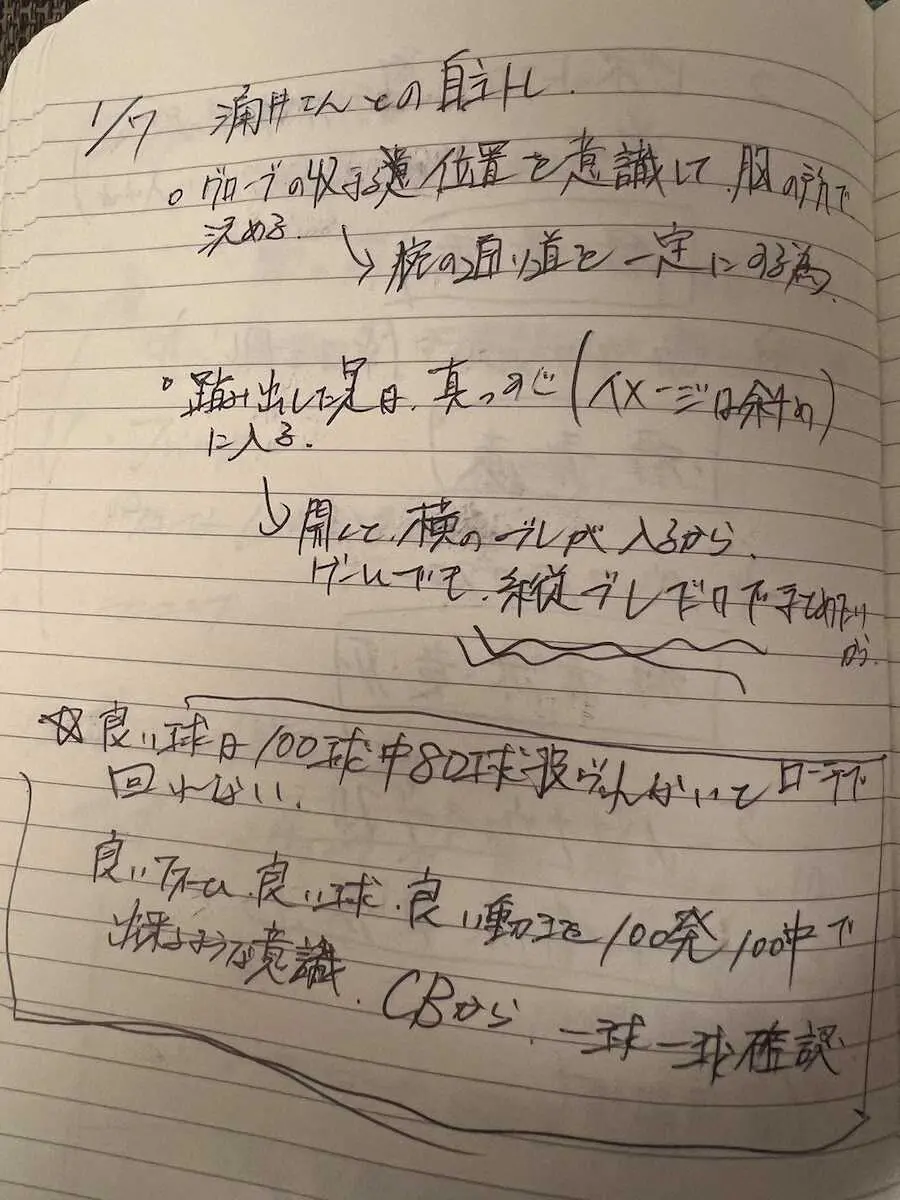 1/7 涌井さんとの自主トレ.
○ グローブの収まる位置を意識して、胸の所で
決める.
↘ 腕の通り道を一定にする為.
○ 踏み出した足は、真っすぐ(イメージは斜め)
に入る.
↓ 開くと、横のブレが入るから、
ゲームでも、縦ブレだけでまとめたい
から.
☆ 良い球は100球中80球投げれないとローテで
回れない.
良いフォーム、良い球、良い動作を100発100中で
出来るような意識.
CBから、一球一球確認